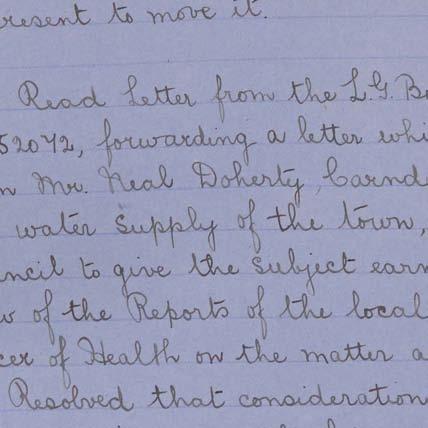 resent to move it.
Read Letter from the L.G. B
52072, forwarding a letter whi
m Mr. Neal Doherty, Carnd
water supply of the town,
uncil to give the subject earn
w of the Reports of the local
cer of Health on the matter a
Resolved that consideration